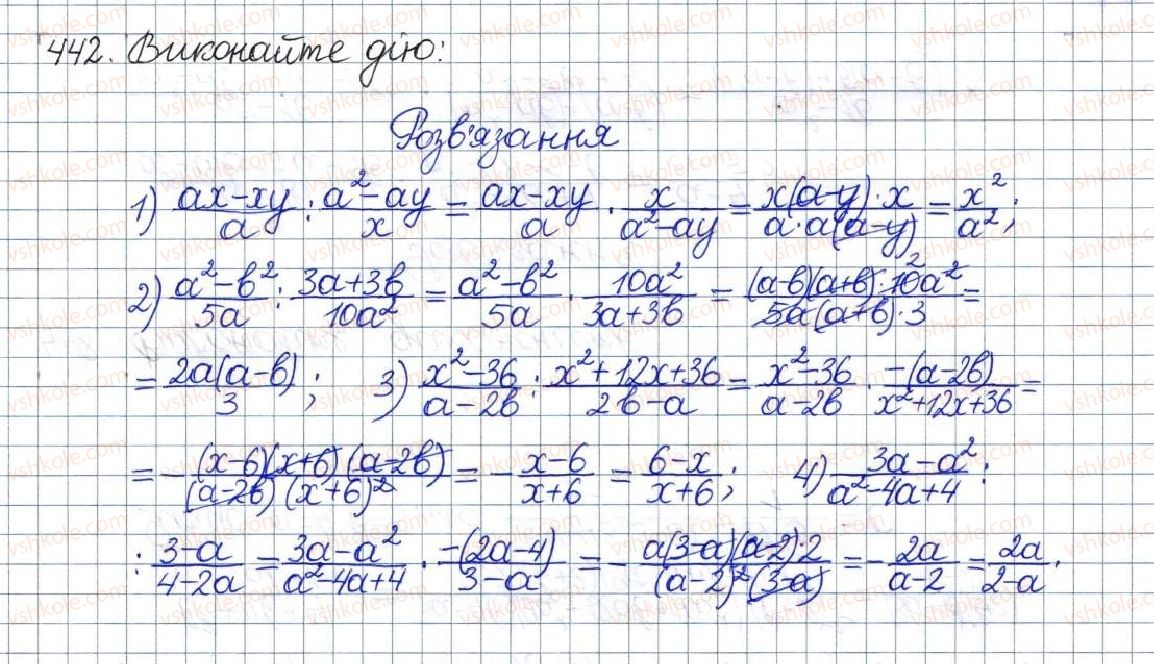 442. Виконайте дію:
Розв'язання
1) (ax-xy)/a : (a²-ay)/x = (ax-xy)/a · x/(a²-ay) = (x(a-y)·x)/(a·a(a-y)) = x²/a²;
2) (a²-b²)/5a : (3a+3b)/10a² = (a²-b²)/5a · 10a²/(3a+3b) = ((a-b)(a+b)·10²a²)/(5a(a+b)·3) =
= 2a(a-b)/3; 3) (x²-36)/(a-2b) : (x²+12x+36)/(2b-a) = (x²-36)/(a-2b) · -(a-2b)/(x²+12x+36) =
= -((x-6)(x+6)(a-2b))/((a-2b)(x+6)²) = -(x-6)/(x+6) = (6-x)/(x+6); 4) (3a-a²)/(a²-4a+4) :
: (3-a)/(4-2a) = (3a-a²)/(a²-4a+4) · -(2a-4)/(3-a) = -(a(3-a)(a-2)·2)/((a-2)²(3-a)) = -2a/(a-2) = 2a/(2-a).
vshkole.com